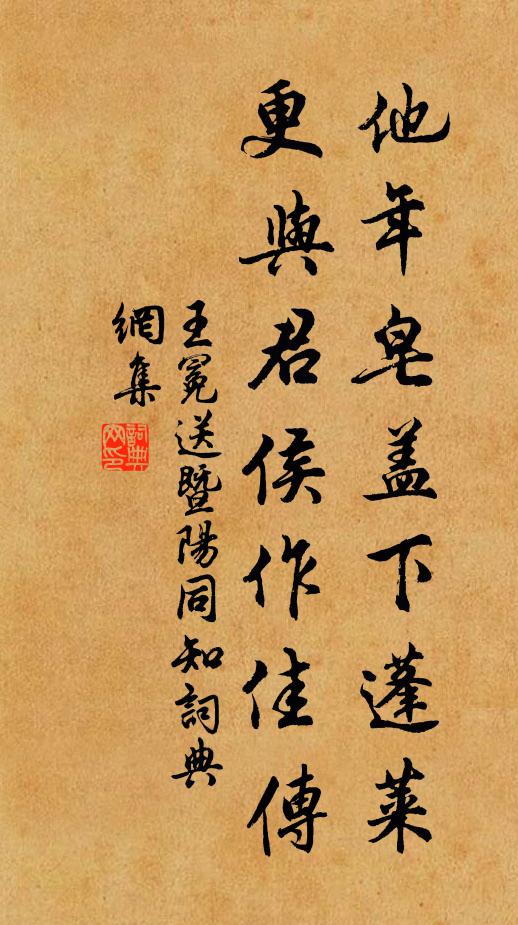 他年皂盖下蓬萊
更與君侯作佳傳
王冕送暨陽同知詞典
網集
詞典
网印